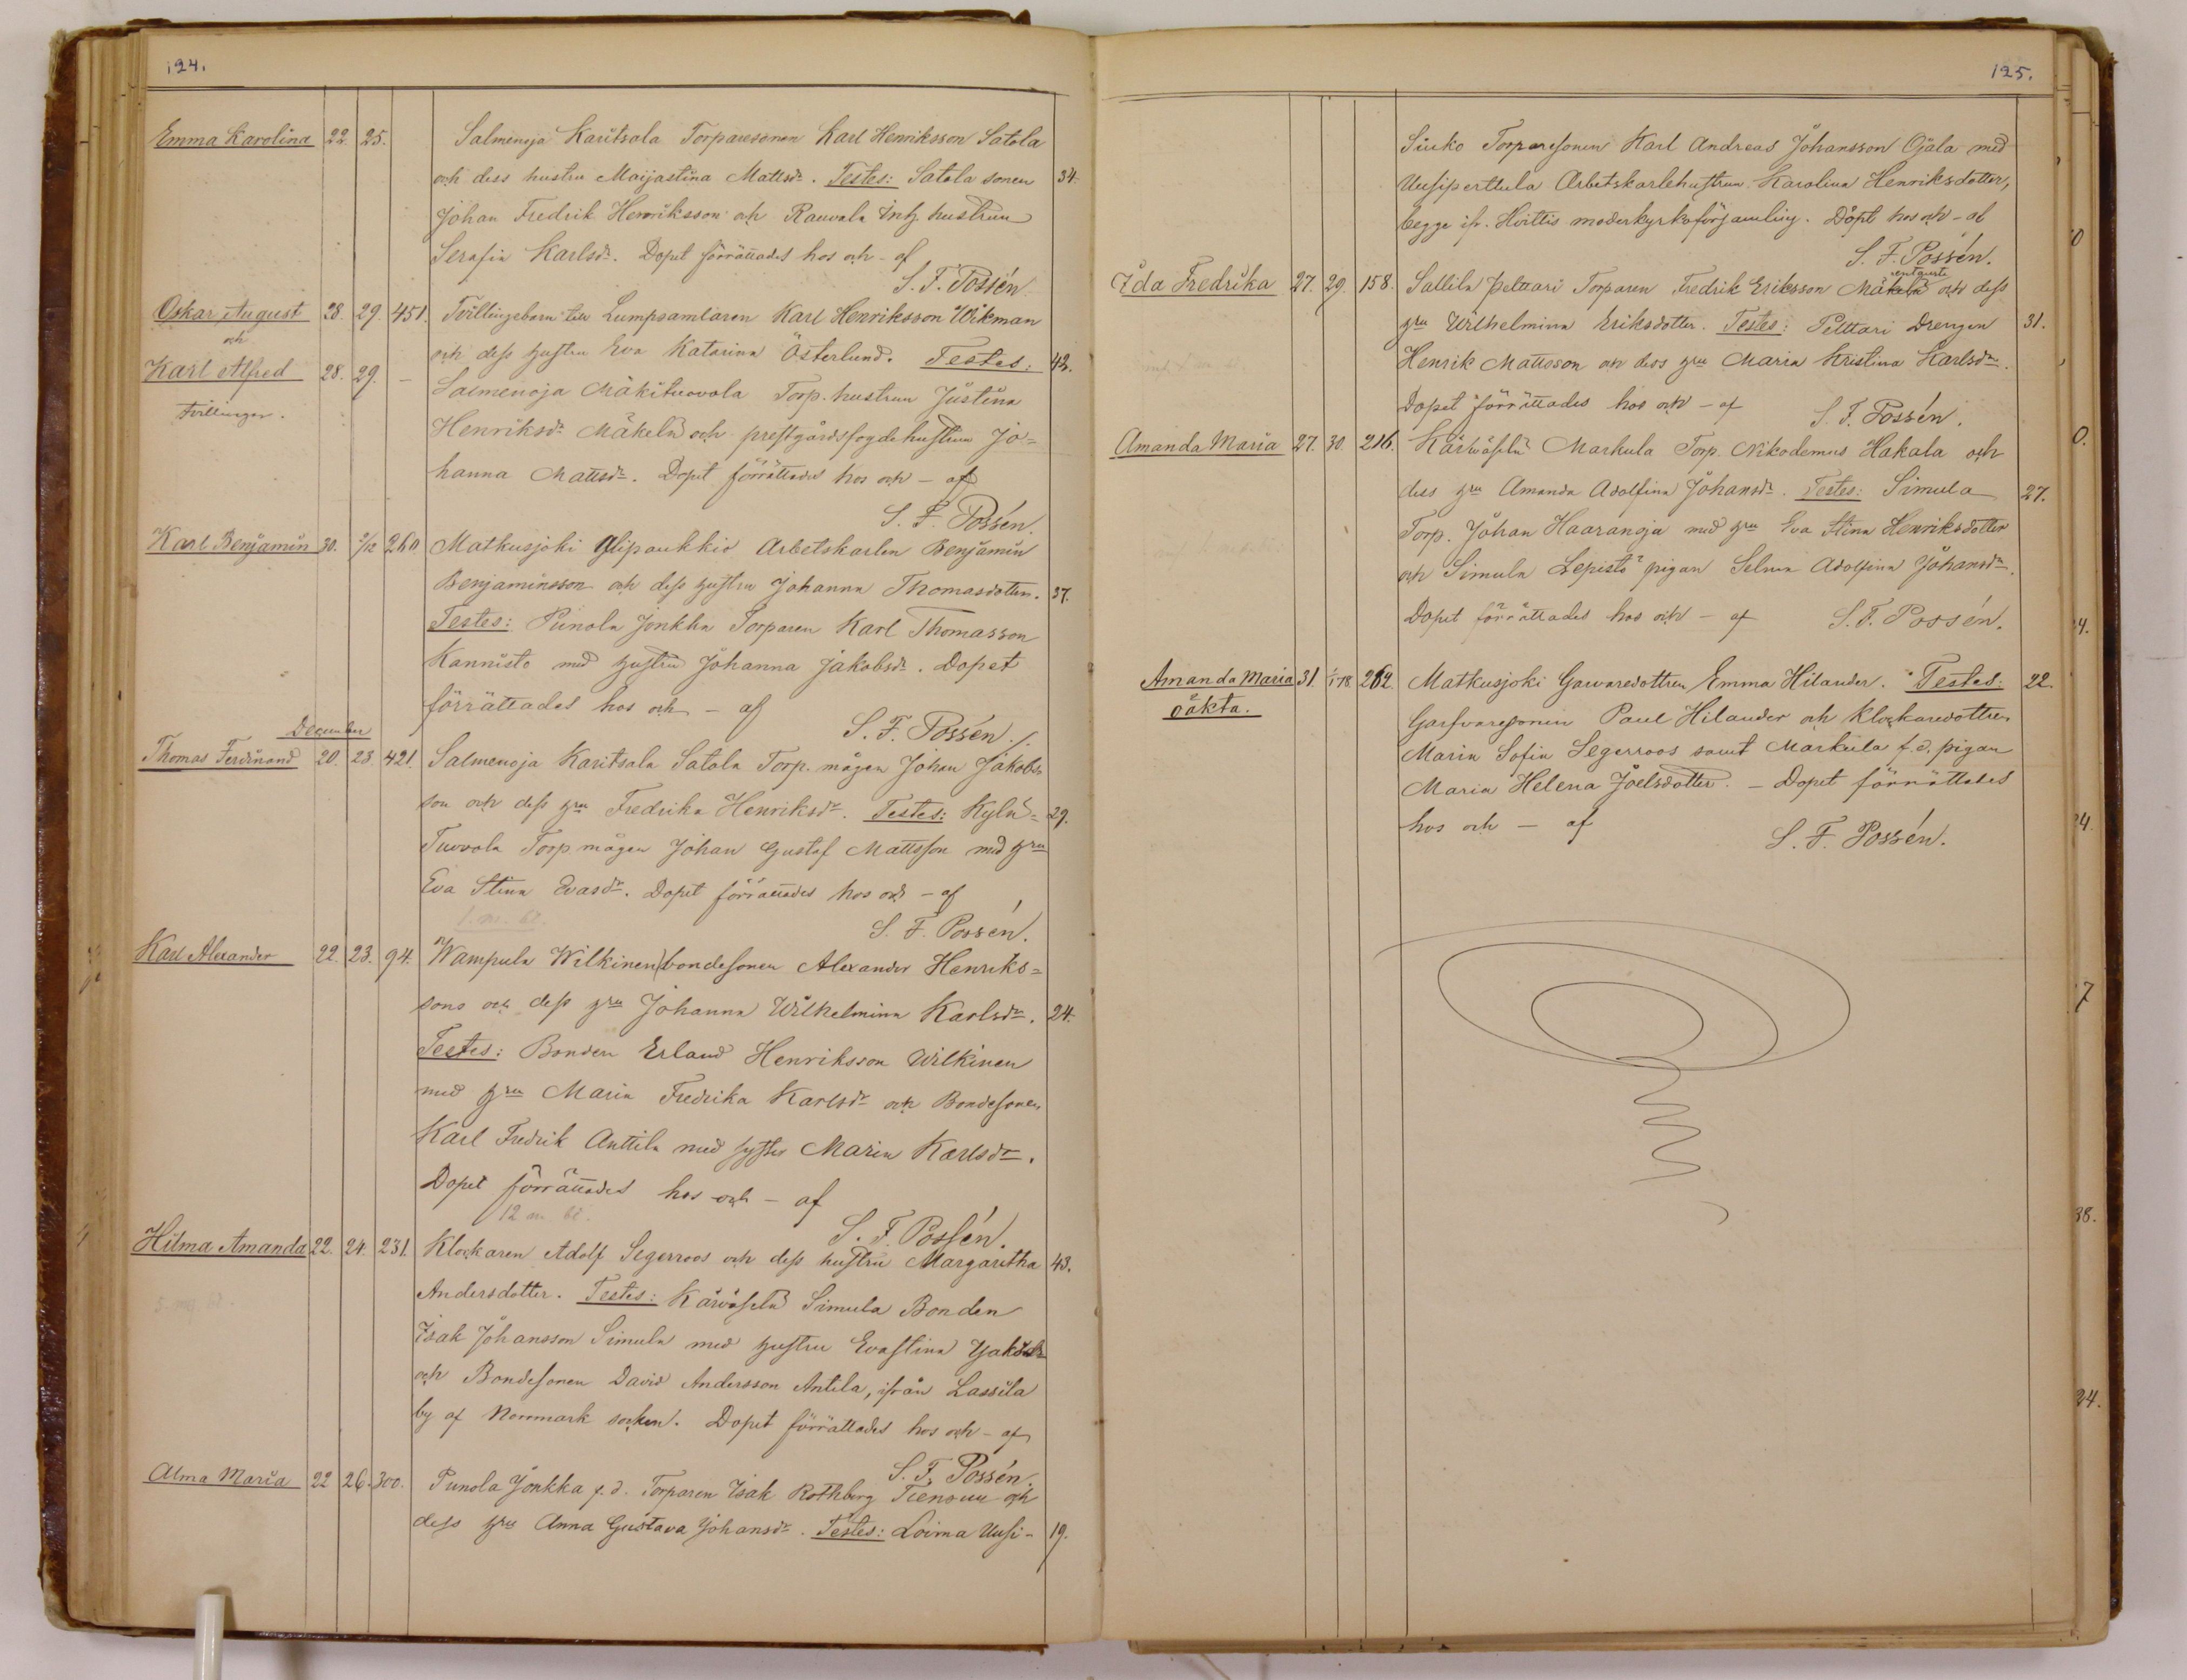 124.
Emma Karolina 22. 25. Salmenoja Karitsala Torparesonen Karl Henriksson Satola
och dess hustru Maijastina Mattsdr. Testes: Satola sonen 34.
Johan Fredrik Henriksson och Rauvola Inh. hustrun
Serafia Karlsdr. Dopet förrättades hos och - af
S. F. Possén.
Oskar August 28. 29. 451. Tvillingebarn till Lumpsamlaren Karl Henriksson Wikman
och
och dess hustru Eva Katarina Österlund. Testes: 42.
Karl Alfred 28. 29. —
Salmenoja Mäkituovola Torp. hustrun Justina
tvillingar.
Henriksdr Mäkelä och prestgårdsfogdehustrun Jo=
hanna Mattsdr. Dopet förrättades hos och — af
S. F. Possén.
Karl Benjamin 30. 2/12 260. Matkusjoki Ylipaukkio Arbetskarlen Benjamin
Benjaminsson och dess hustru Johanna Thomasdotter. 37.
Testes: Punola Jonkka Torparen Karl Thomasson
Kannisto med hustru Johanna Jakobsdr. Dopet
förrättades hos och — af
S. F. Possén.
December
Thomas Ferdinand 20. 23. 421. Salmenoja Karitsala Satola Torp. mågen Johan Jakobs
son och dess hru Fredrika Henriksdr. Testes: Kylä= 29.
Tuovola Torp mågen Johan Gustaf Mattsson med hru
Eva Stina Evasdr. Dopet förrättades hos och — af
S. F. Possén.
Karl Alexander 22. 23. 94. Wampula Wilkinen bondesonen Alexander Henriks=
sons och dess hru Johanna Wilhelmina Karlsdr. 24.
Testes: Bonden Erland Henriksson Wilkinen
med hru Maria Fredrika Karlsdr och Bondesonen
Karl Fredrik Anttila med syster Maria Karlsdr.
Dopet förrättades hos och — af
12 m.
S. F. Possén.
Hilma Amanda 22. 24. 231. Klockaren Adolf Segerroos och dess hustru Margaritha 43.
Andersdotter. Testes: Kärväselä Simula Bonden
Isak Johansson Simula med hustru Evastina
och Bondesonen David Andersson Antila, ifrån Lassila
by af Norrmark socken. Dopet förrättades hos och — af
S. F. Possén.
Alma Maria 22 26. 300. Punola Jonkka f.d. Torparen Isak Rothberg Tiensuu och
dess hru Anna Gustava Johansdr. Testes: Loima Uusi- 19.
125.
Siuko Torparesonen Karl Andreas Johansson Ojala med
Uusiperttula Arbetskarlehustrun Karolina Henriksdotter,
begge ifr. Hvittis moderkyrkoförsamling. Dopt hos och — af
S. F. Possén.
Ida Fredrika 27. 29. 158. Sallila Pelttari Torparen Fredrik Eriksson Mäkelä och dess
hru Wilhelmina Eriksdotter. Testes: Pelttari Drengen 31.
Henrik Mattsson och dess hru Maria Kristina Karlsdr.
Dopet förrättades hos och — af S. F. Possén.
Amanda Maria 27. 30. 216. Kärväselä Markula Torp. Nikodemus Hakala och
dess hru Amanda Adolfina Johansdr. Testes: Simula 27.
Torp. Johan Haaranoja med hru Eva Stina Henriksdotter
och Simula Lepistö pigan Selma Adolfina Johansdr.
Dopet förrättades hos och — af S. F. Possén.
Amanda Maria 31. 1/1 78. 262. Matkusjoki Garvaredottren Emma Hilander. Testes: 22.
oäkta.
Garfvaresonen Paul Hilander och Klockaredottren
Maria Sofia Segerroos samt Markula f.d. pigan
Maria Helena Joelsdotter. — Dopet förrättades
hos och — af S. F. Possén.